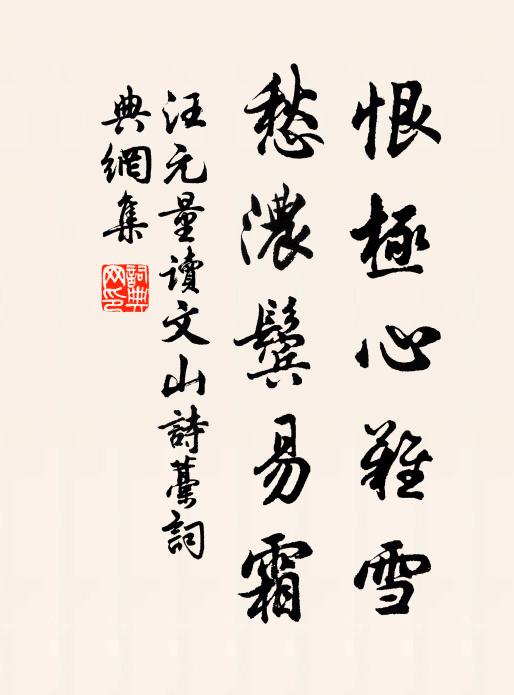 恨極心難雪
愁濃鬢易霜
汪元量讀文山詩藁詞
典網集
詞典網印